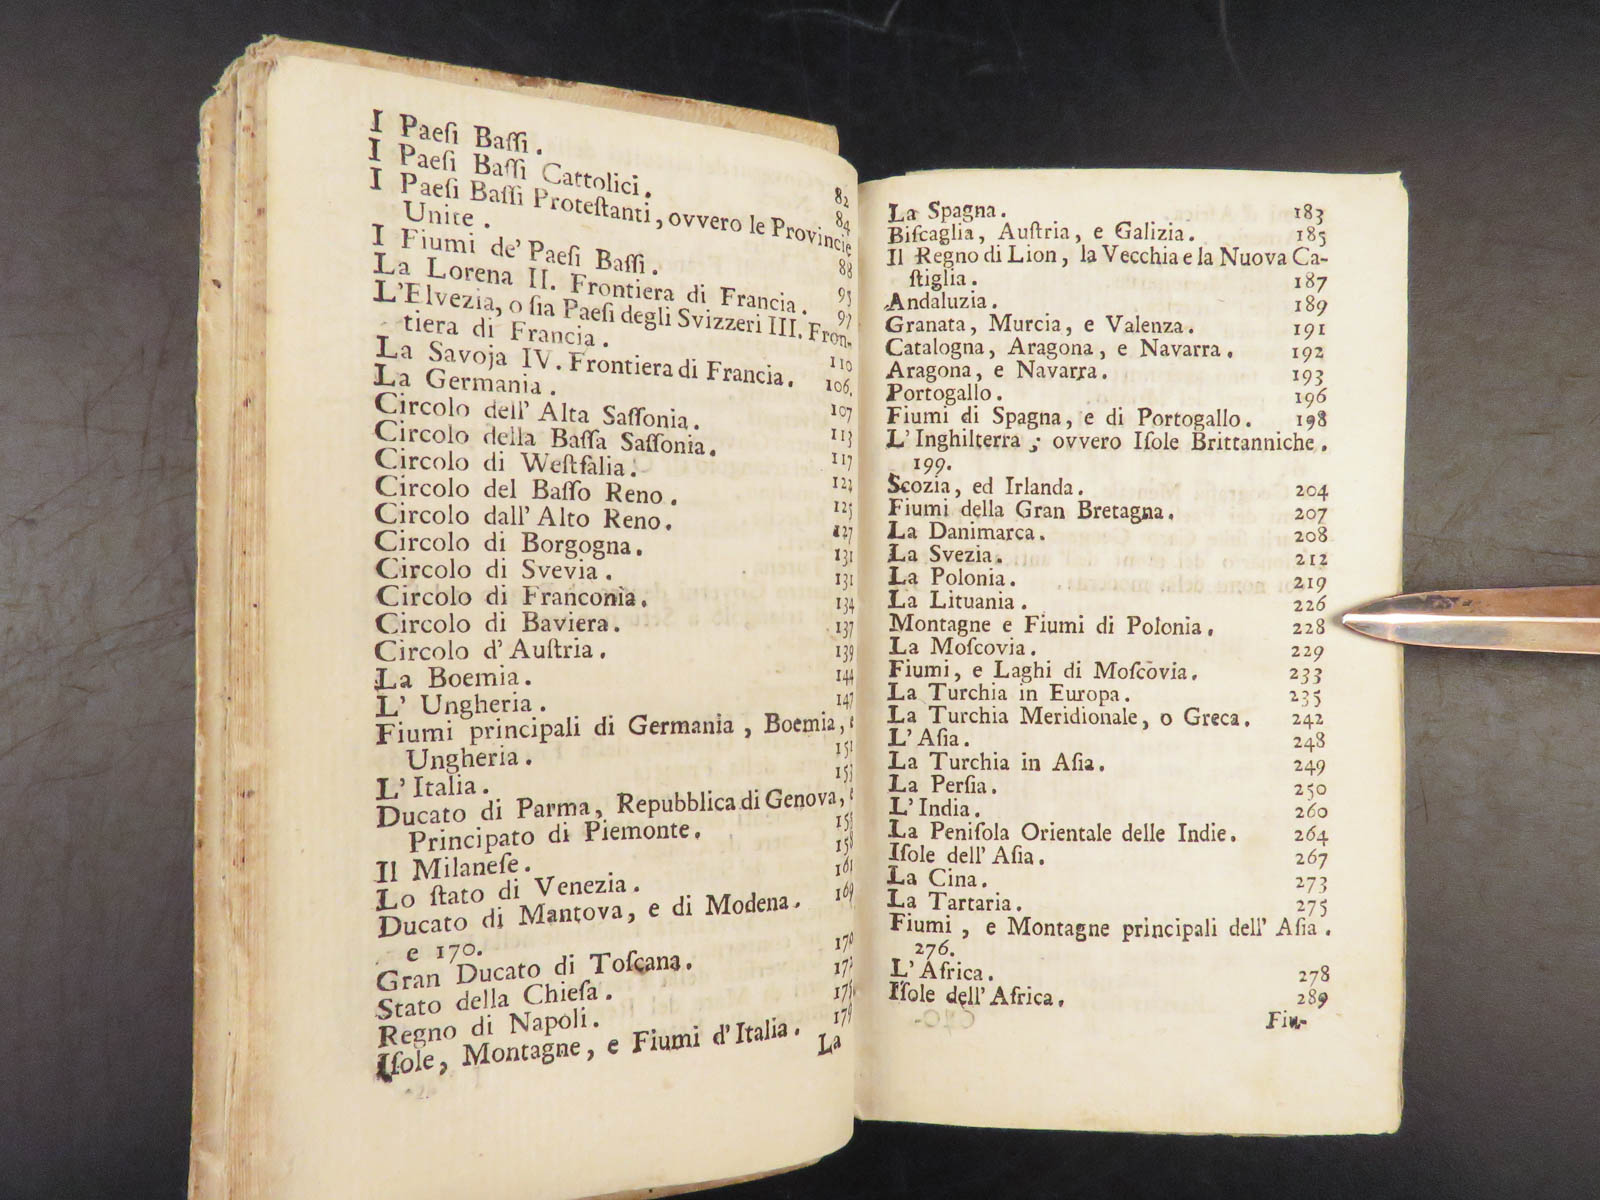 I Paeſi Baſſi. 82
I Paeſi Baſſi Cattolici. 84
I Paeſi Baſſi Proteſtanti, ovvero le Provincie
Unite. 88
I Fiumi de' Paeſi Baſſi. 93
La Lorena II. Frontiera di Francia. 97
L'Elvezia, o ſia Paeſi degli Svizzeri III. Fron-
tiera di Francia. 110
La Savoja IV. Frontiera di Francia. 106.
La Germania. 107
Circolo dell' Alta Saſſonia. 113
Circolo della Baſſa Saſſonia. 117
Circolo di Weſtfalia.
Circolo del Baſſo Reno. 125
Circolo dall' Alto Reno. 127
Circolo di Borgogna. 131
Circolo di Svevia. 131
Circolo di Franconia. 134
Circolo di Baviera. 137
Circolo d' Auſtria. 139
La Boemia. 144
L' Ungheria. 147
Fiumi principali di Germania, Boemia, e
Ungheria. 151
L' Italia. 153
Ducato di Parma, Repubblica di Genova, e
Principato di Piemonte. 155
Il Milaneſe. 158
Lo ſtato di Venezia. 161
Ducato di Mantova, e di Modena. 169
e 170.
Gran Ducato di Toſcana. 170
Stato della Chieſa. 172
Regno di Napoli. 175
Iſole, Montagne, e Fiumi d' Italia. 178
La
La Spagna. 183
Biſcaglia, Auſtria, e Galizia. 185
Il Regno di Lion, la Vecchia e la Nuova Ca-
ſtiglia. 187
Andaluzia. 189
Granata, Murcia, e Valenza. 191
Catalogna, Aragona, e Navarra. 192
Aragona, e Navarra. 193
Portogallo. 196
Fiumi di Spagna, e di Portogallo. 198
L' Inghilterra; ovvero Iſole Brittanniche.
199.
Scozia, ed Irlanda. 204
Fiumi della Gran Bretagna. 207
La Danimarca. 208
La Svezia. 212
La Polonia. 219
La Lituania. 226
Montagne e Fiumi di Polonia. 228
La Moſcovia. 229
Fiumi, e Laghi di Moſcovia. 233
La Turchia in Europa. 235
La Turchia Meridionale, o Greca. 242
L' Aſia. 248
La Turchia in Aſia. 249
La Perſia. 250
L' India. 260
La Peniſola Orientale delle Indie. 264
Iſole dell' Aſia. 267
La Cina. 273
La Tartaria. 275
Fiumi, e Montagne principali dell' Aſia.
276.
L' Africa. 278
Iſole dell' Africa. 289
Fiu-